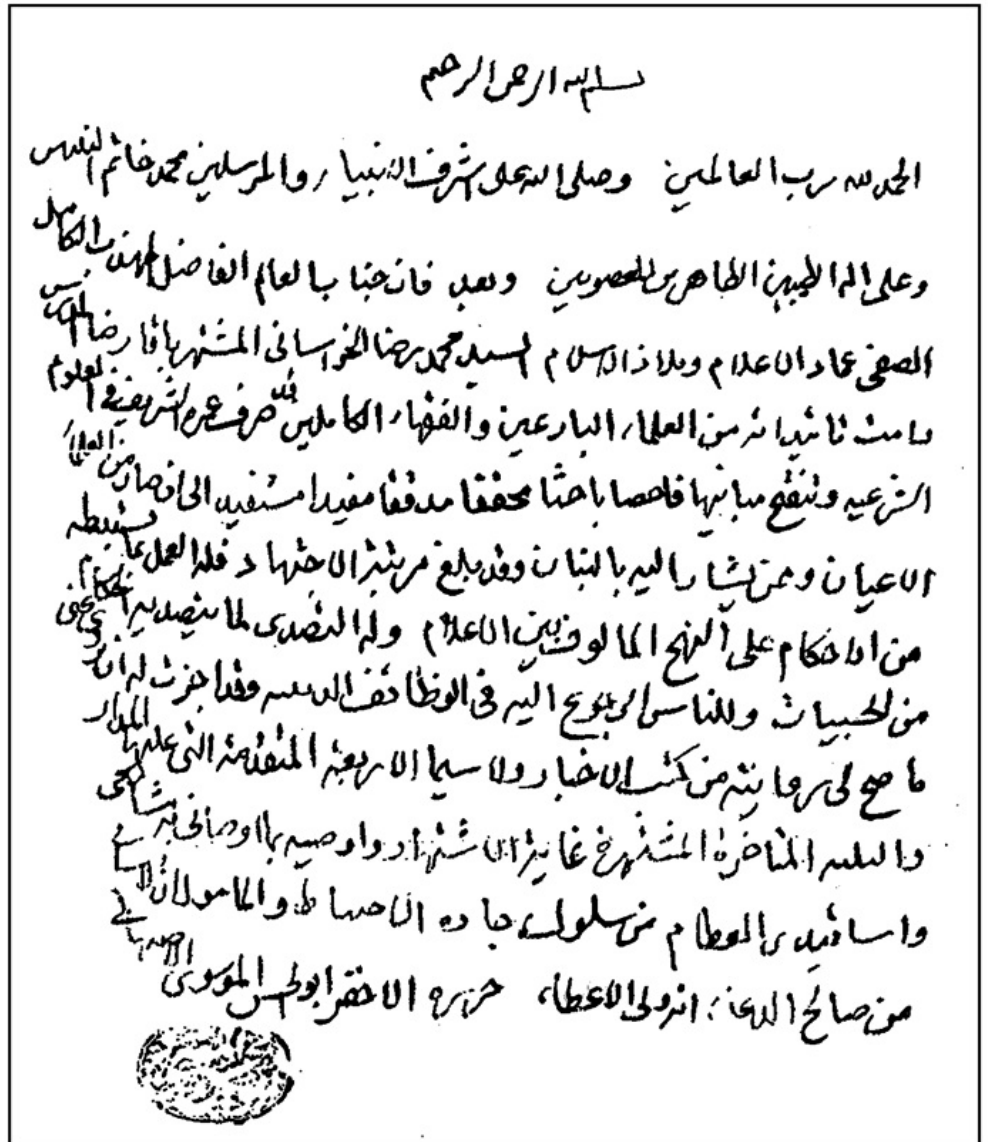 بسم الله الرحمن الرحيم
الحمد لله رب العالمين وصلى الله على اشرف الانبياء والمرسلين محمد خاتم النبيين
وعلى اله الطيبين الطاهرين المعصومين وبعد فان جناب العالم الفاضل المهذب الكامل
الصفى عماد الاعلام وملاذ الاسلام السيد محمد رضا الخراسانى المشتهر باقا رضا المدرس
دامت تائيداته من العلماء البارعين والفقهاء الكاملين قد صرف عمره الشريف فى العلوم
الشرعيه وتنقيح مبانيها فاحصا باحثا محققا مدققا مفيدا مستفيدا الى ان صار من العلماء
الاعيان وممن يشار اليه بالبنان وقد بلغ مرتبة الاجتهاد فله العمل بما يستنبطه
من الاحكام على النهج المالوف بين الاعلام وله التصدى لما يتصديه الحكام
من الحسبيات وللناس الرجوع اليه فى الوظائف الدينيه وقد اجزت له ان يروى عنى
ما صح لى روايته من كتب الاخبار ولا سيما الاربعة المتقدمة التى عليها المدار
والثلثه المتاخرة المشتهرة غاية الاشتهار واوصيه بما اوصانى به مشايخى
واساتيدى العظام من سلوك جاده الاحتياط والمامول ان لا ينسانى
من صالح الدعاء انه ولى الاعطاء حرره الاحقر ابو الحسن الموسوى الاصبهانى